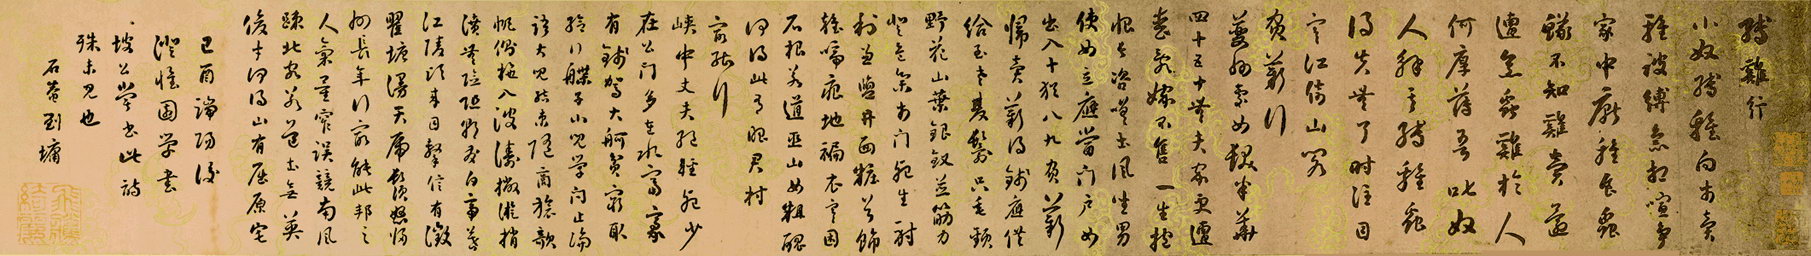 縛雞行
小奴縛雞向市賣
雞被縛急相喧爭
家中厭雞食蟲
蟻不知雞賣還
遭烹蟲雞於人
何厚薄吾叱奴
人解其縛雞蟲
得失無了時注目
寒江倚山閣
負薪行
夔州處女髮半華
四十五十無夫家更遭
喪亂嫁不售一生抱
恨長咨嗟土風坐男
使女立應當門戶女
出入十猶八九負薪
歸賣薪得錢應供
給至老雙鬟只垂頸
野花山葉銀釵並筋力
登危集市門死生射
利兼鹽井面粧首飾
雜啼痕地褊衣寒困
石根若道巫山女粗醜
何得此有昭君村
最能行
峽中丈夫絕輕死少
在公門多在水富豪
有錢駕大舸貧窮取
給行艓子小兒學問止論
語大兒結束隨商旅欹
帆側柁入波濤撇漩捎
濆無險阻朝發白帝暮
江陵頃來目擊信有徵
瞿塘漫天虎鬚怒歸
州長年行最能此邦之
人氣量窄誤競南風
疏北客若道士無英
俊才何得山有屈原宅
己酉端陽後
澄懷園學書
坡公嘗書此詩
殊未見也
石菴劉墉